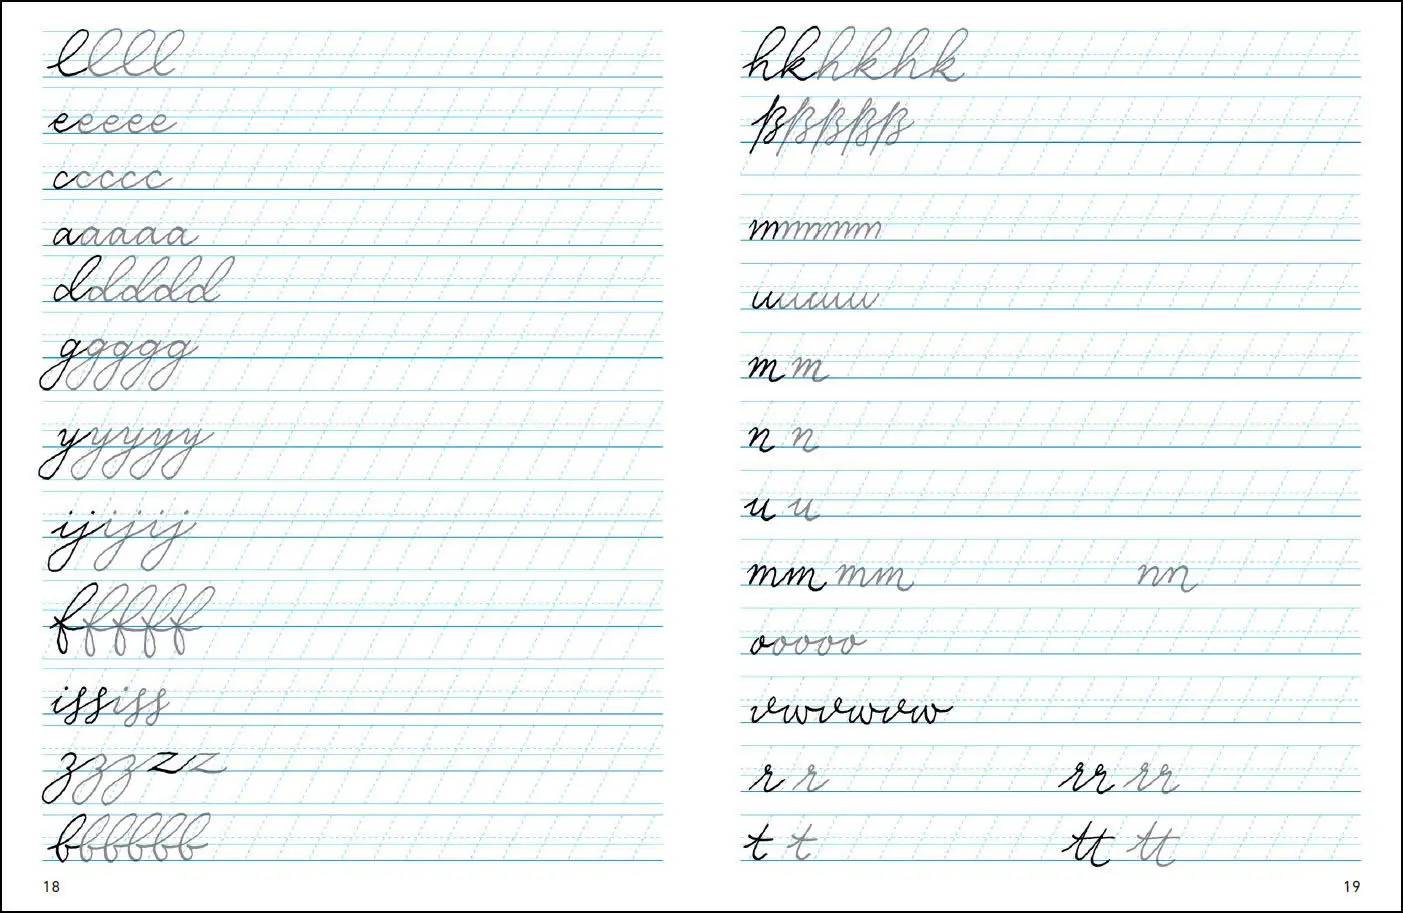 llll
eeeee
ccccc
aaaaa
ddddd
ggggg
yyyyy
ijijij
fffff
ississ
zzz zz
bbbbb
18
hkhkhk
ßßßßß
mmmmm
uuuuu
m m
n n
u u
mm mm nn
ooooo
vwvwvw
r r rr rr
t t tt tt
19